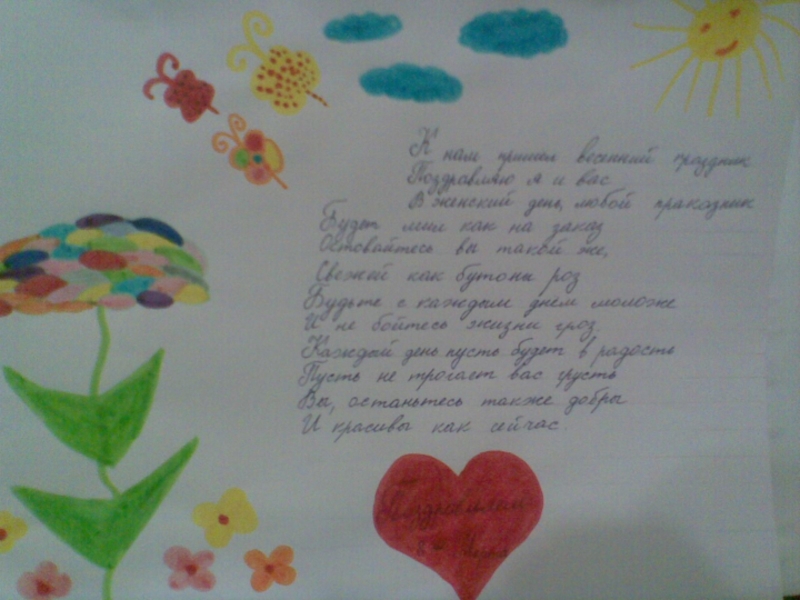 К нам пришел весенний праздник
Поздравляю я и вас
В женский день, любой праказник
Будет мил как на заказ
Оставайтесь вы такой же,
Свежей как бутоны роз
Будьте с каждым днём моложе
И не бойтесь жизни гроз.
Каждый день пусть будет в радость
Пусть не трогает вас грусть
Вы, останьтесь также добры
И красивы как сейчас.
Поздравляем
8 Марта